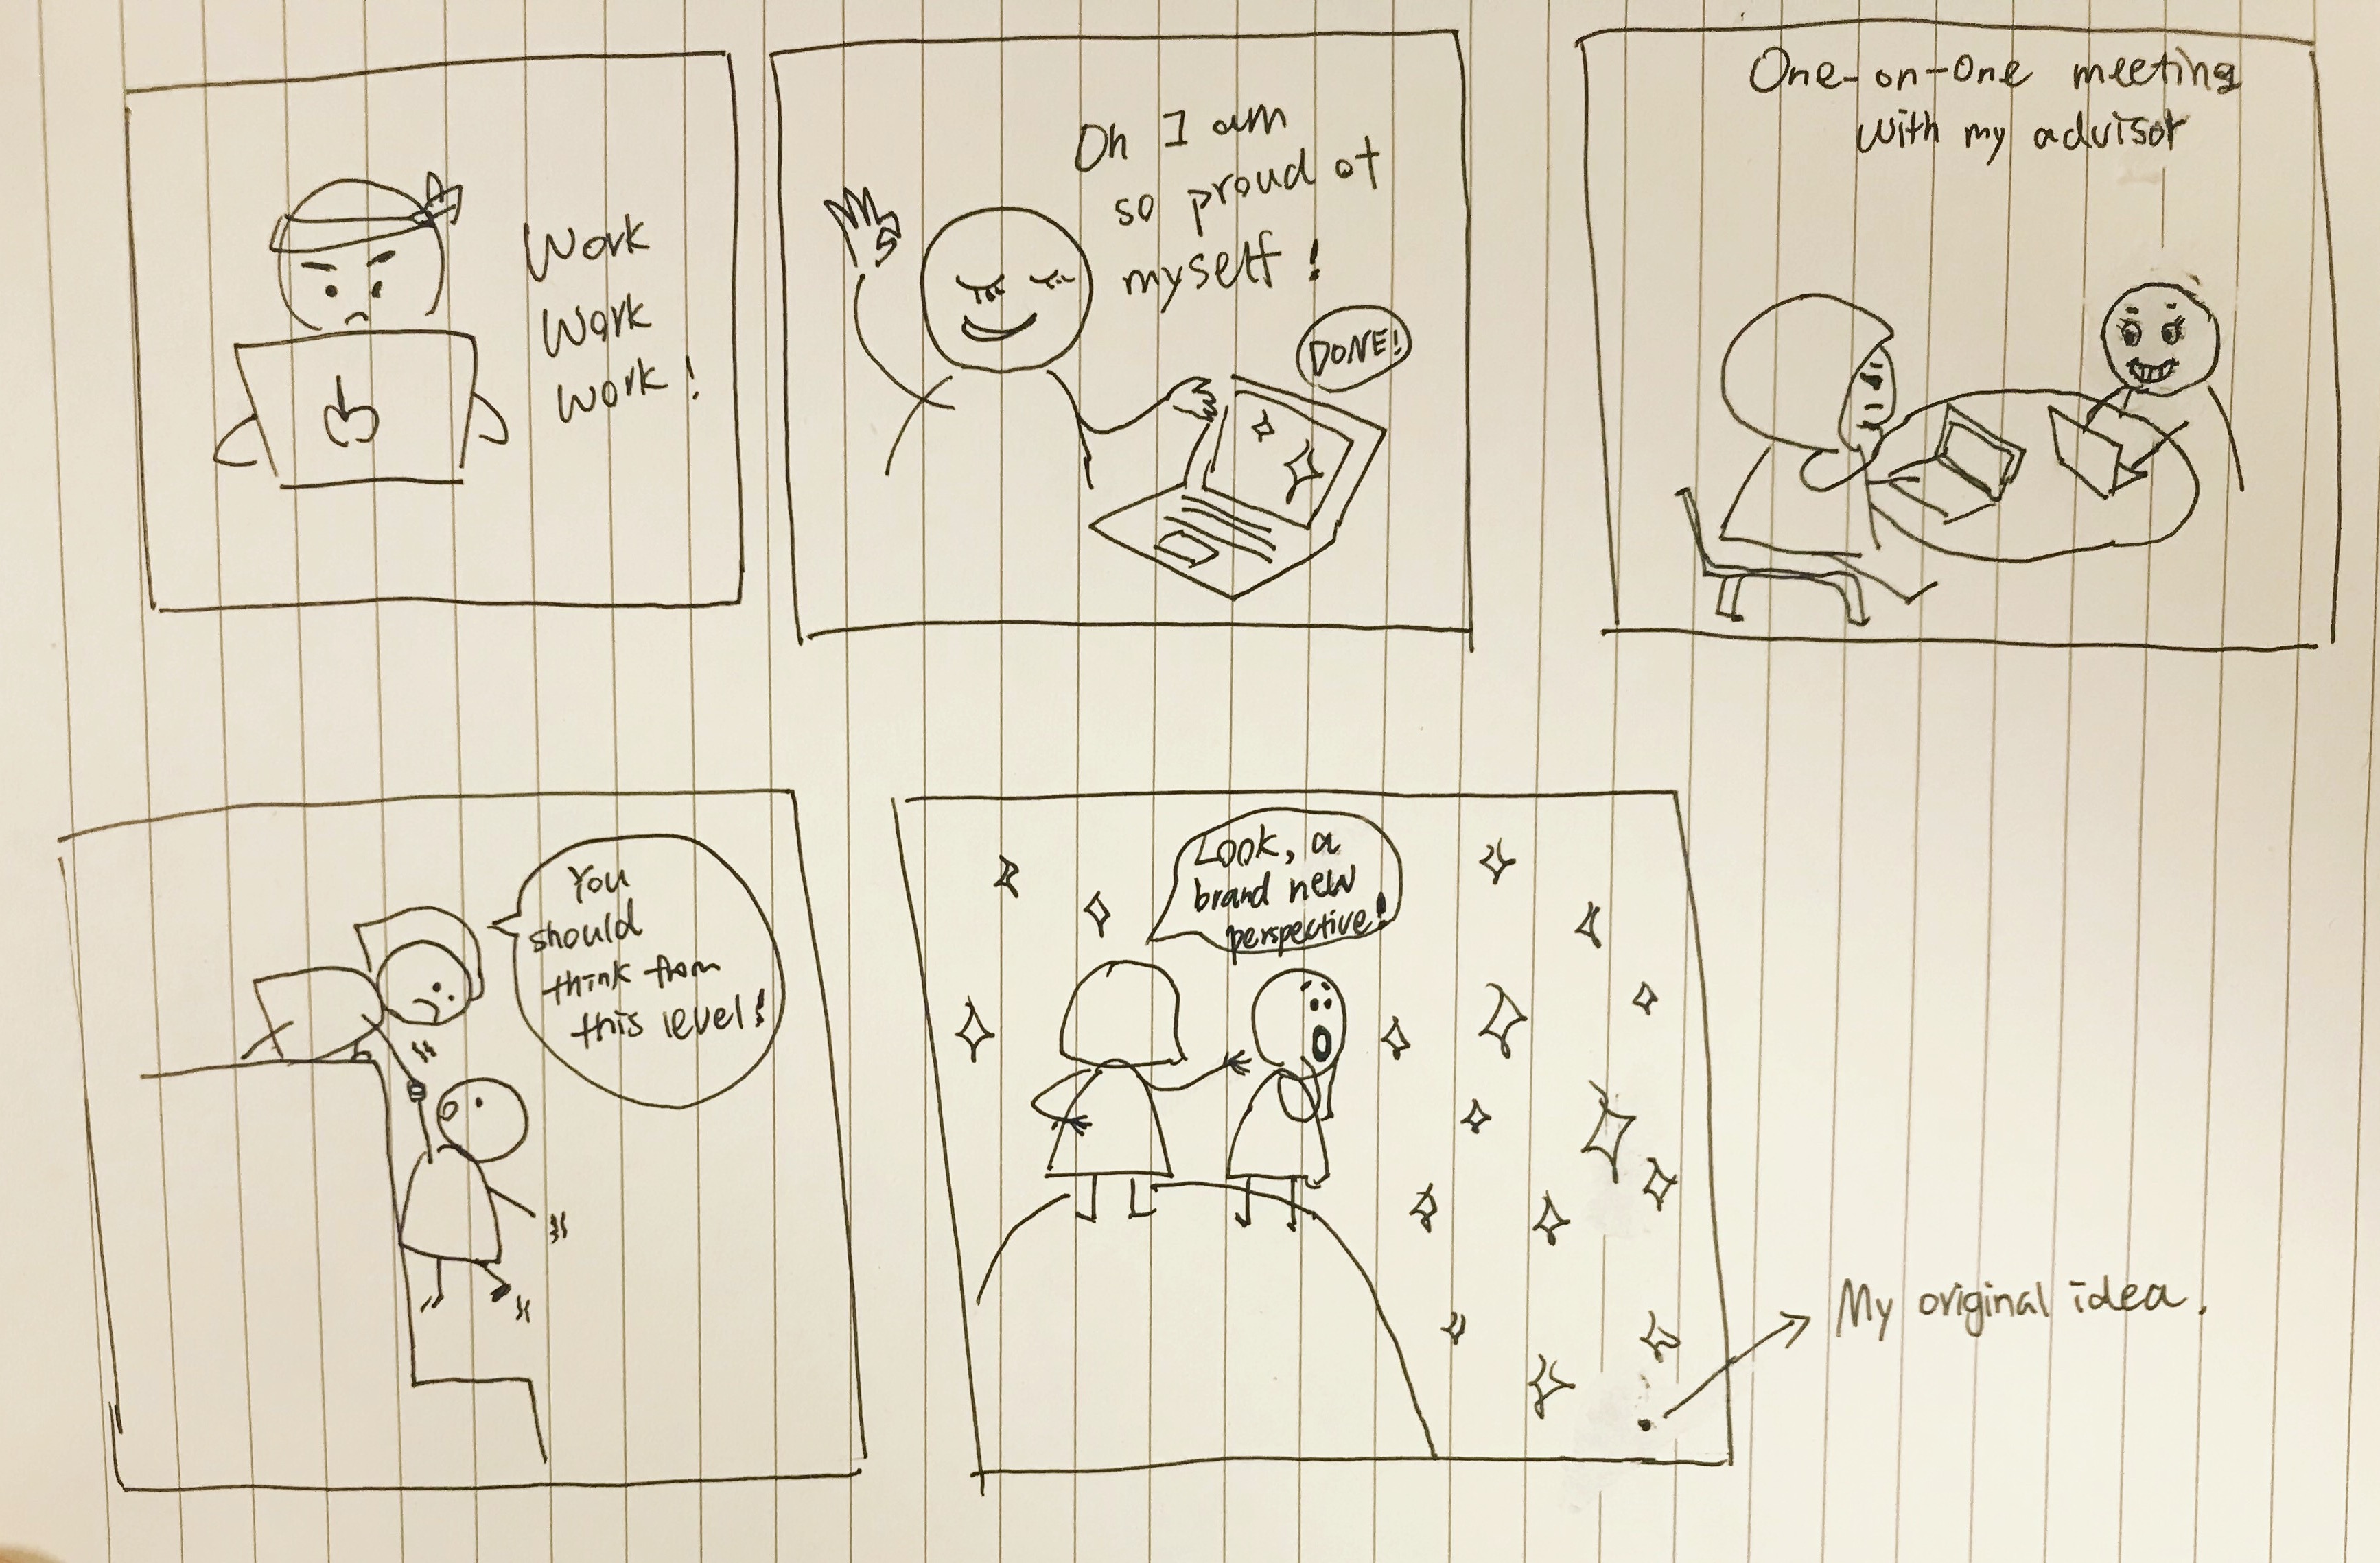 Work
Work
Work!
Oh I am
so proud of
myself!
DONE!
One-on-One meeting
with my advisor
You
should
think from
this level!
Look, a
brand new
perspective!
My original idea.